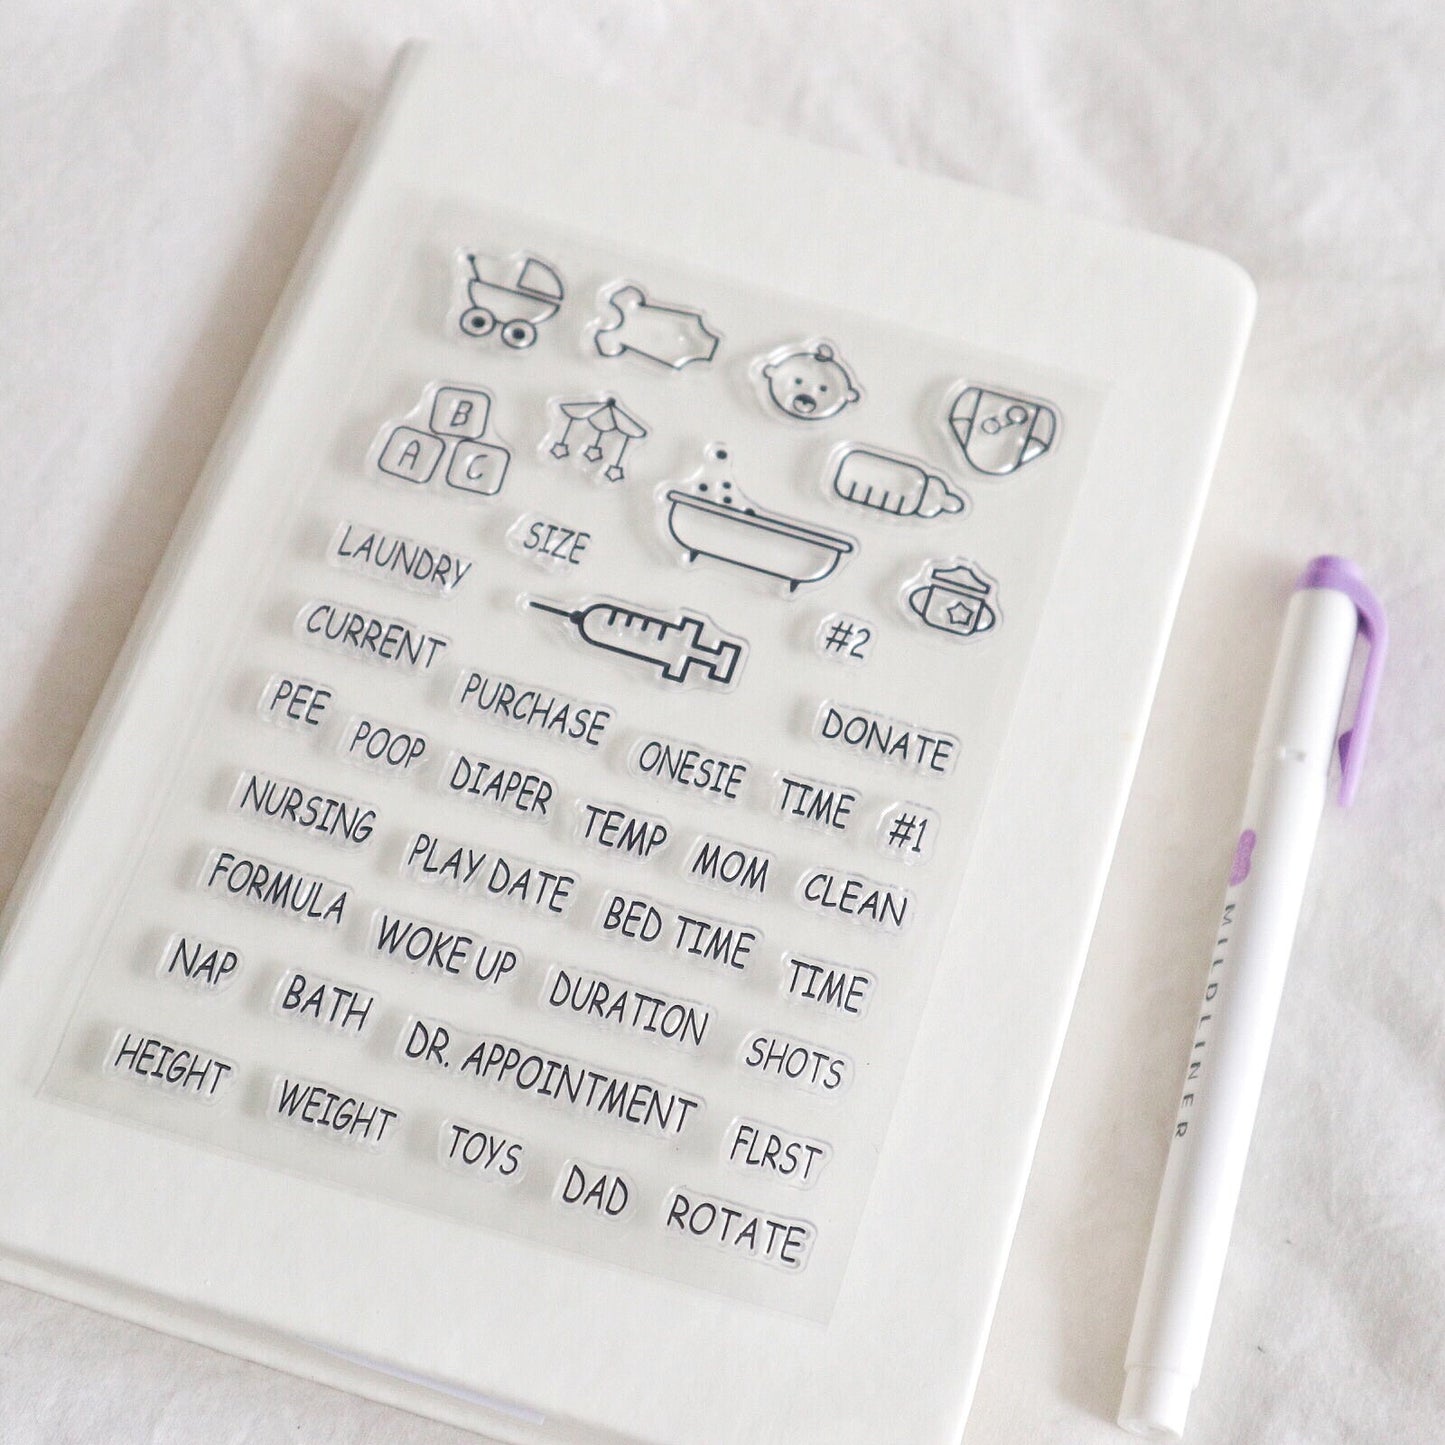 B
A C
LAUNDRY SIZE
CURRENT #2
PEE PURCHASE DONATE
POOP DIAPER ONESIE TIME #1
NURSING TEMP MOM CLEAN
FORMULA PLAY DATE BED TIME TIME
NAP WOKE UP DURATION SHOTS
HEIGHT BATH DR. APPOINTMENT FLRST
WEIGHT TOYS DAD ROTATE
MILDLINER